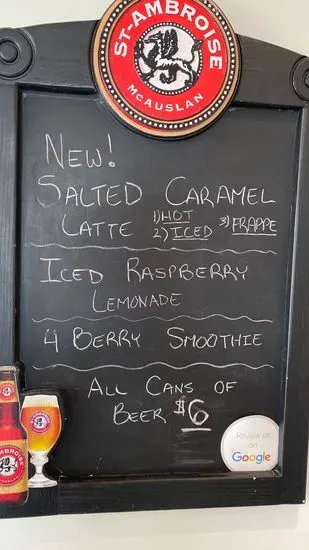 ST-AMBROISE
McAUSLAN
NEW!
SALTED CARAMEL
LATTE 1) HOT 2) ICED 3) FRAPPE
ICED RASPBERRY
LEMONADE
4 BERRY SMOOTHIE
ALL CANS OF
BEER $6
Review us
on
Google